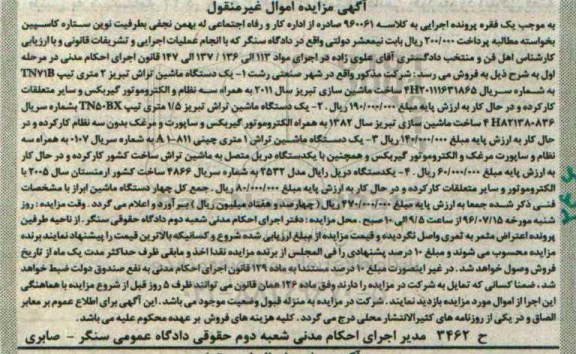 آگهی مزایده اموال غیرمنقول
به موجب یک فقره پرونده اجرایی به کلاسه ۹۶۰۰۶۱ صادره از اداره کار و رفاه اجتماعی له بهمن نجفی بطرفیت نوین ستاره کاسپین
بخواسته مطالبه پرداخت ۲۰۰/۰۰۰ ریال بابت نیمعشر دولتی واقع در دادگاه سنگر که با انجام عملیات اجرایی و تشریفات قانونی و با ارزیابی
کارشناس اهل فن و منتخب دادگستری آقای علوی زاده در اجرای مواد ۱۱۳ الی ۱۲۶ / ۱۳۷ الی ۱۴۷ قانون اجرای احکام مدنی در مرحله
اول به شرح ذیل به فروش می رسد: شرکت مذکور واقع در شهر صنعتی رشت ۱- یک دستگاه ماشین تراش تبریز ۲ متری تیپ TN۷۱B
به شماره سریال ۴H۲۰۱۱۱۶۳۱۸۶۵ ساخت ماشین سازی تبریز سال ۲۰۱۱ به همراه سه نظام و الکتروموتور گیربکس و سایر متعلقات
کارکرده و در حال کار به ارزش پایه مبلغ ۱۹۰/۰۰۰/۰۰۰ ریال. ۲- یک دستگاه ماشین تراش تبریز ۱/۵ متری تیپ TN۵۰BX بشماره سریال
۴HA۲۱۳۸۰۸۳۶ ساخت ماشین سازی تبریز سال ۱۳۸۲ به همراه الکتروموتور گیربکس و ساپورت و مرغک بدون سه نظام کارکرده و در
حال کار به ارزش پایه مبلغ ۱۴۰/۰۰۰/۰۰۰ ریال ۳- یک دستگاه ماشین تراش ۱ متری چینی A۱-۸۱۱ به شماره سریال ۰۱۰۷ به همراه سه
نظام و ساپورت مرغک و الکتروموتور گیربکس و همچنین با یکدستگاه دریل متصل به ماشین تراش ساخت کشور کارکرده و در حال کار
به ارزش پایه مبلغ ۶۰/۰۰۰/۰۰۰ ریال. ۴- یکدستگاه دریل رایال مدل ۲۵۳۲ به شماره سریال ۴۸۶۶ ساخت کشور ارمنستان سال ۲۰۰۵ با
الکتروموتور و سایر متعلقات کارکرده و در حال کار به ارزش پایه مبلغ ۸۰/۰۰۰/۰۰۰ ریال. جمع کل چهار دستگاه ماشین ابراز با مشخصات
فنی ذکر شده جمعا به ارزش پایه مبلغ ۴۷۰/۰۰۰/۰۰۰ ریال (چهارصد و هفتاد میلیون ریال) برآورد و اعلام می گردد. وقت مزایده: روز
شنبه مورخه ۹۶/۰۷/۱۵ از ساعت ۹/۵ الی ۱۰ صبح. محل مزایده: دفتر اجرای احکام مدنی شعبه دوم دادگاه حقوقی سنگر. از ناحیه طرفین
پرونده اعتراض مثمر به ثمری واصل نگردیده و قیمت مزایده از مبلغ ارزیابی شده شروع و کسانیکه بالاترین قیمت را پیشنهاد نمایند برنده
مزایده محسوب می شوند و مبلغ ۱۰ درصد پیشنهادی را فی المجلس از برنده مزایده نقدا اخذ و مابقی ظرف حداکثر مدت یک ماه از تاریخ
فروش وصول خواهد شد. در غیر اینصورت مبلغ ۱۰ درصد مستندا به ماده ۱۲۹ قانون اجرای احکام مدنی به نفع صندوق دولت ضبط خواهد
شد. ضمنا کسانی که تمایل به شرکت در مزایده را دارند وفق ماده ۱۲۶ همان قانون می توانند ظرف ۵ روز قبل از شروع مزایده با هماهنگی
این اجرا از اموال مورد مزایده بازدید نمایند. شرکت در مزایده به منزله قبول وضعیت موجود می باشد. این آگهی برای اطلاع عموم بر معابر
الصاق و در یکی از روزنامه های کثیرالانتشار محلی درج می گردد. کلیه هزینه های فروش بر عهده محکوم علیه می باشد.
ح ۳۴۶۲ مدیر اجرای احکام مدنی شعبه دوم حقوقی دادگاه عمومی سنگر - صابری